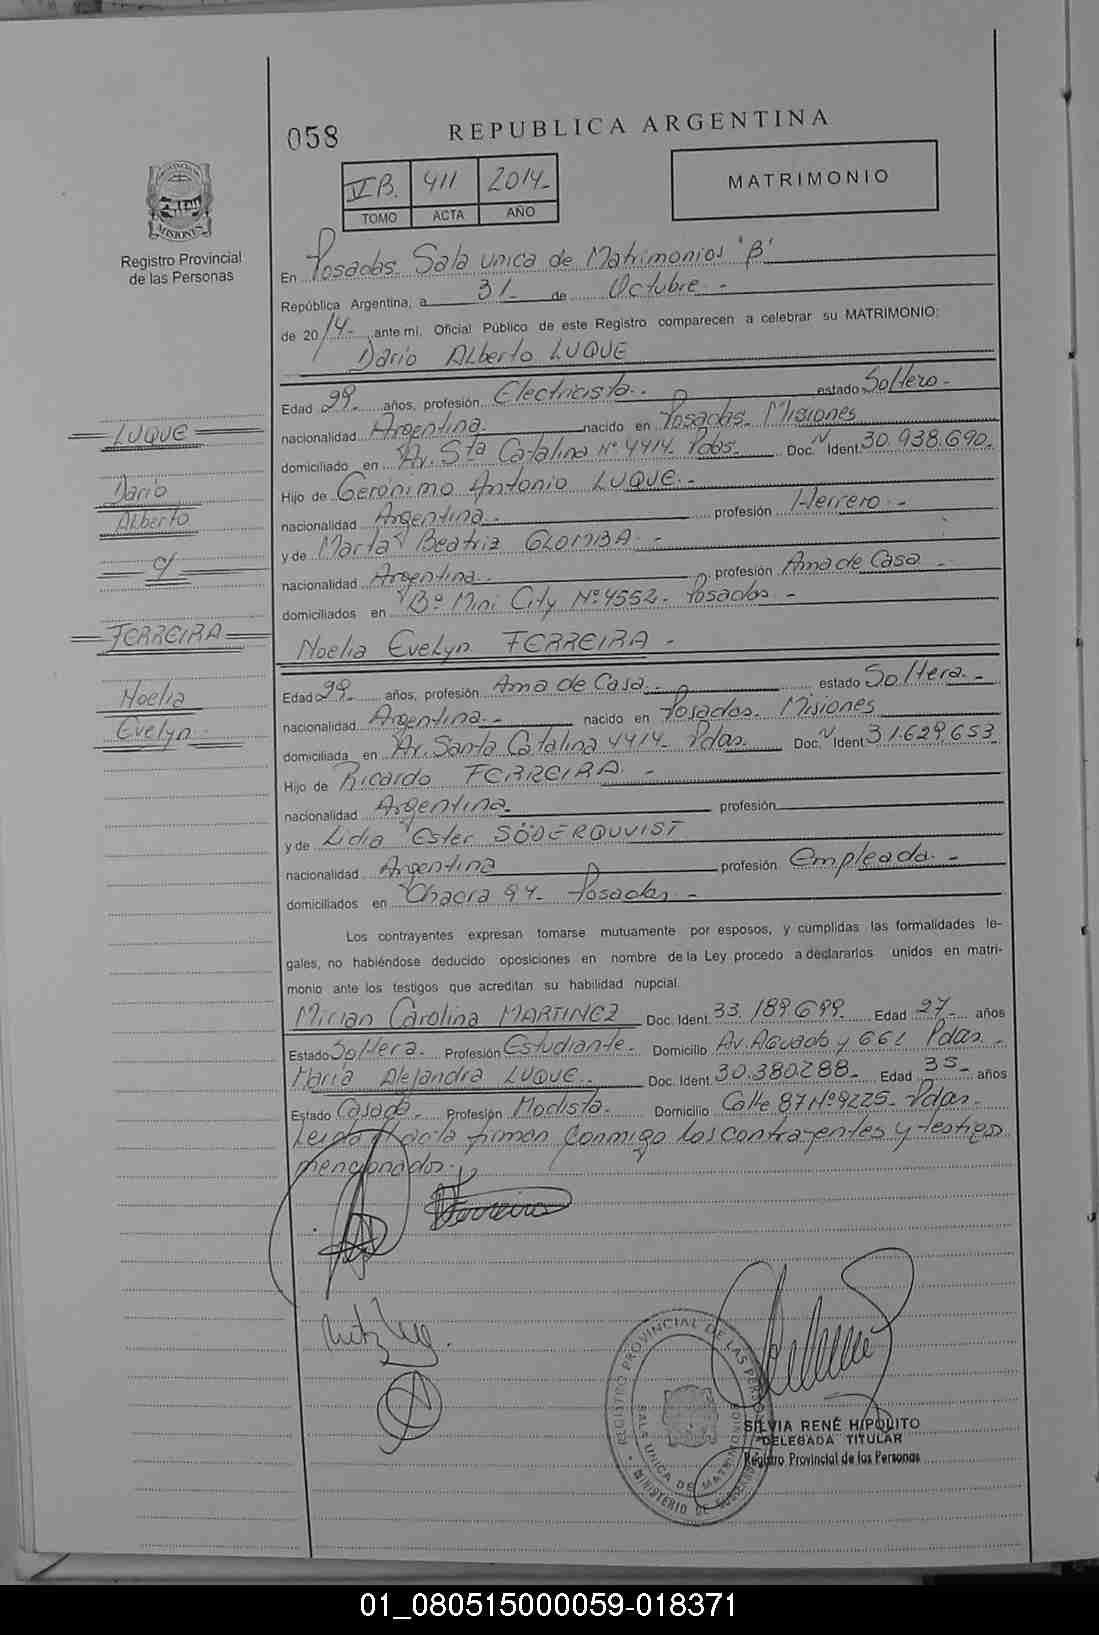 058
REPUBLICA ARGENTINA
VI B. 411 2014-
TOMO ACTA AÑO
MATRIMONIO
MISIONES
Registro Provincial
de las Personas
En Posadas Sala unica de Matrimonios "B"
República Argentina, a 31- de Octubre -
de 2014- ante mi, Oficial Público de este Registro comparecen a celebrar su MATRIMONIO:
Dario Alberto LUQUE
Edad 29 años, profesión Electricista.- estado Soltero-
nacionalidad Argentina nacido en Posadas Misiones
domiciliado en Av. Sta Catalina Nº 4414- Pdas- Doc. N Ident. 30.938.690-
Hijo de Gerónimo Antonio LUQUE.-
nacionalidad Argentina.- profesión Herrero.-
y de Marta Beatriz GLOMBA -
nacionalidad Argentina.- profesión Ama de Casa -
domiciliados en Bº Mini City Nº 4552- Posadas -
Noelia Evelyn FERREIRA -
Edad 29- años, profesión Ama de Casa.- estado Soltera.-
nacionalidad Argentina.- nacido en Posadas Misiones
domiciliada en Av. Santa Catalina 4414- Pdas. Doc. N Ident 31.629.653
Hijo de Ricardo FERREIRA. -
nacionalidad Argentina. profesión
y de Lidia Ester SÖDERQUVIST
nacionalidad Argentina profesión Empleada.-
domiciliados en Chacra 94- Posadas -
Los contrayentes expresan tomarse mutuamente por esposos, y cumplidas las formalidades le-
gales, no habiéndose deducido oposiciones en nombre de la Ley procedo a declararlos unidos en matri-
monio ante los testigos que acreditan su habilidad nupcial.
Mirian Carolina MARTINEZ Doc. Ident. 33.189.699. Edad 27- años
Estado Soltera. Profesión Estudiante. Domicilio Av. Aguado y 661 Pdas.-
Maria Alejandra LUQUE. Doc. Ident. 30.380.288- Edad 35- años
Estado Casada. Profesión Modista. Domicilio Calle 87 Nº 9225- Pdas.-
Leida el acta firman conmigo los contrayentes y testigos
mencionados.-
LUQUE
Dario
Alberto
c/
FERREIRA
Noelia
Evelyn
Ferreira
REGISTRO PROVINCIAL DE LAS PERSONAS
SALA UNICA DE MATRIMONIOS
MINISTERIO DE GOBIERNO
SILVIA RENÉ HIPOLITO
DELEGADA TITULAR
Registro Provincial de las Personas
01_080515000059-018371